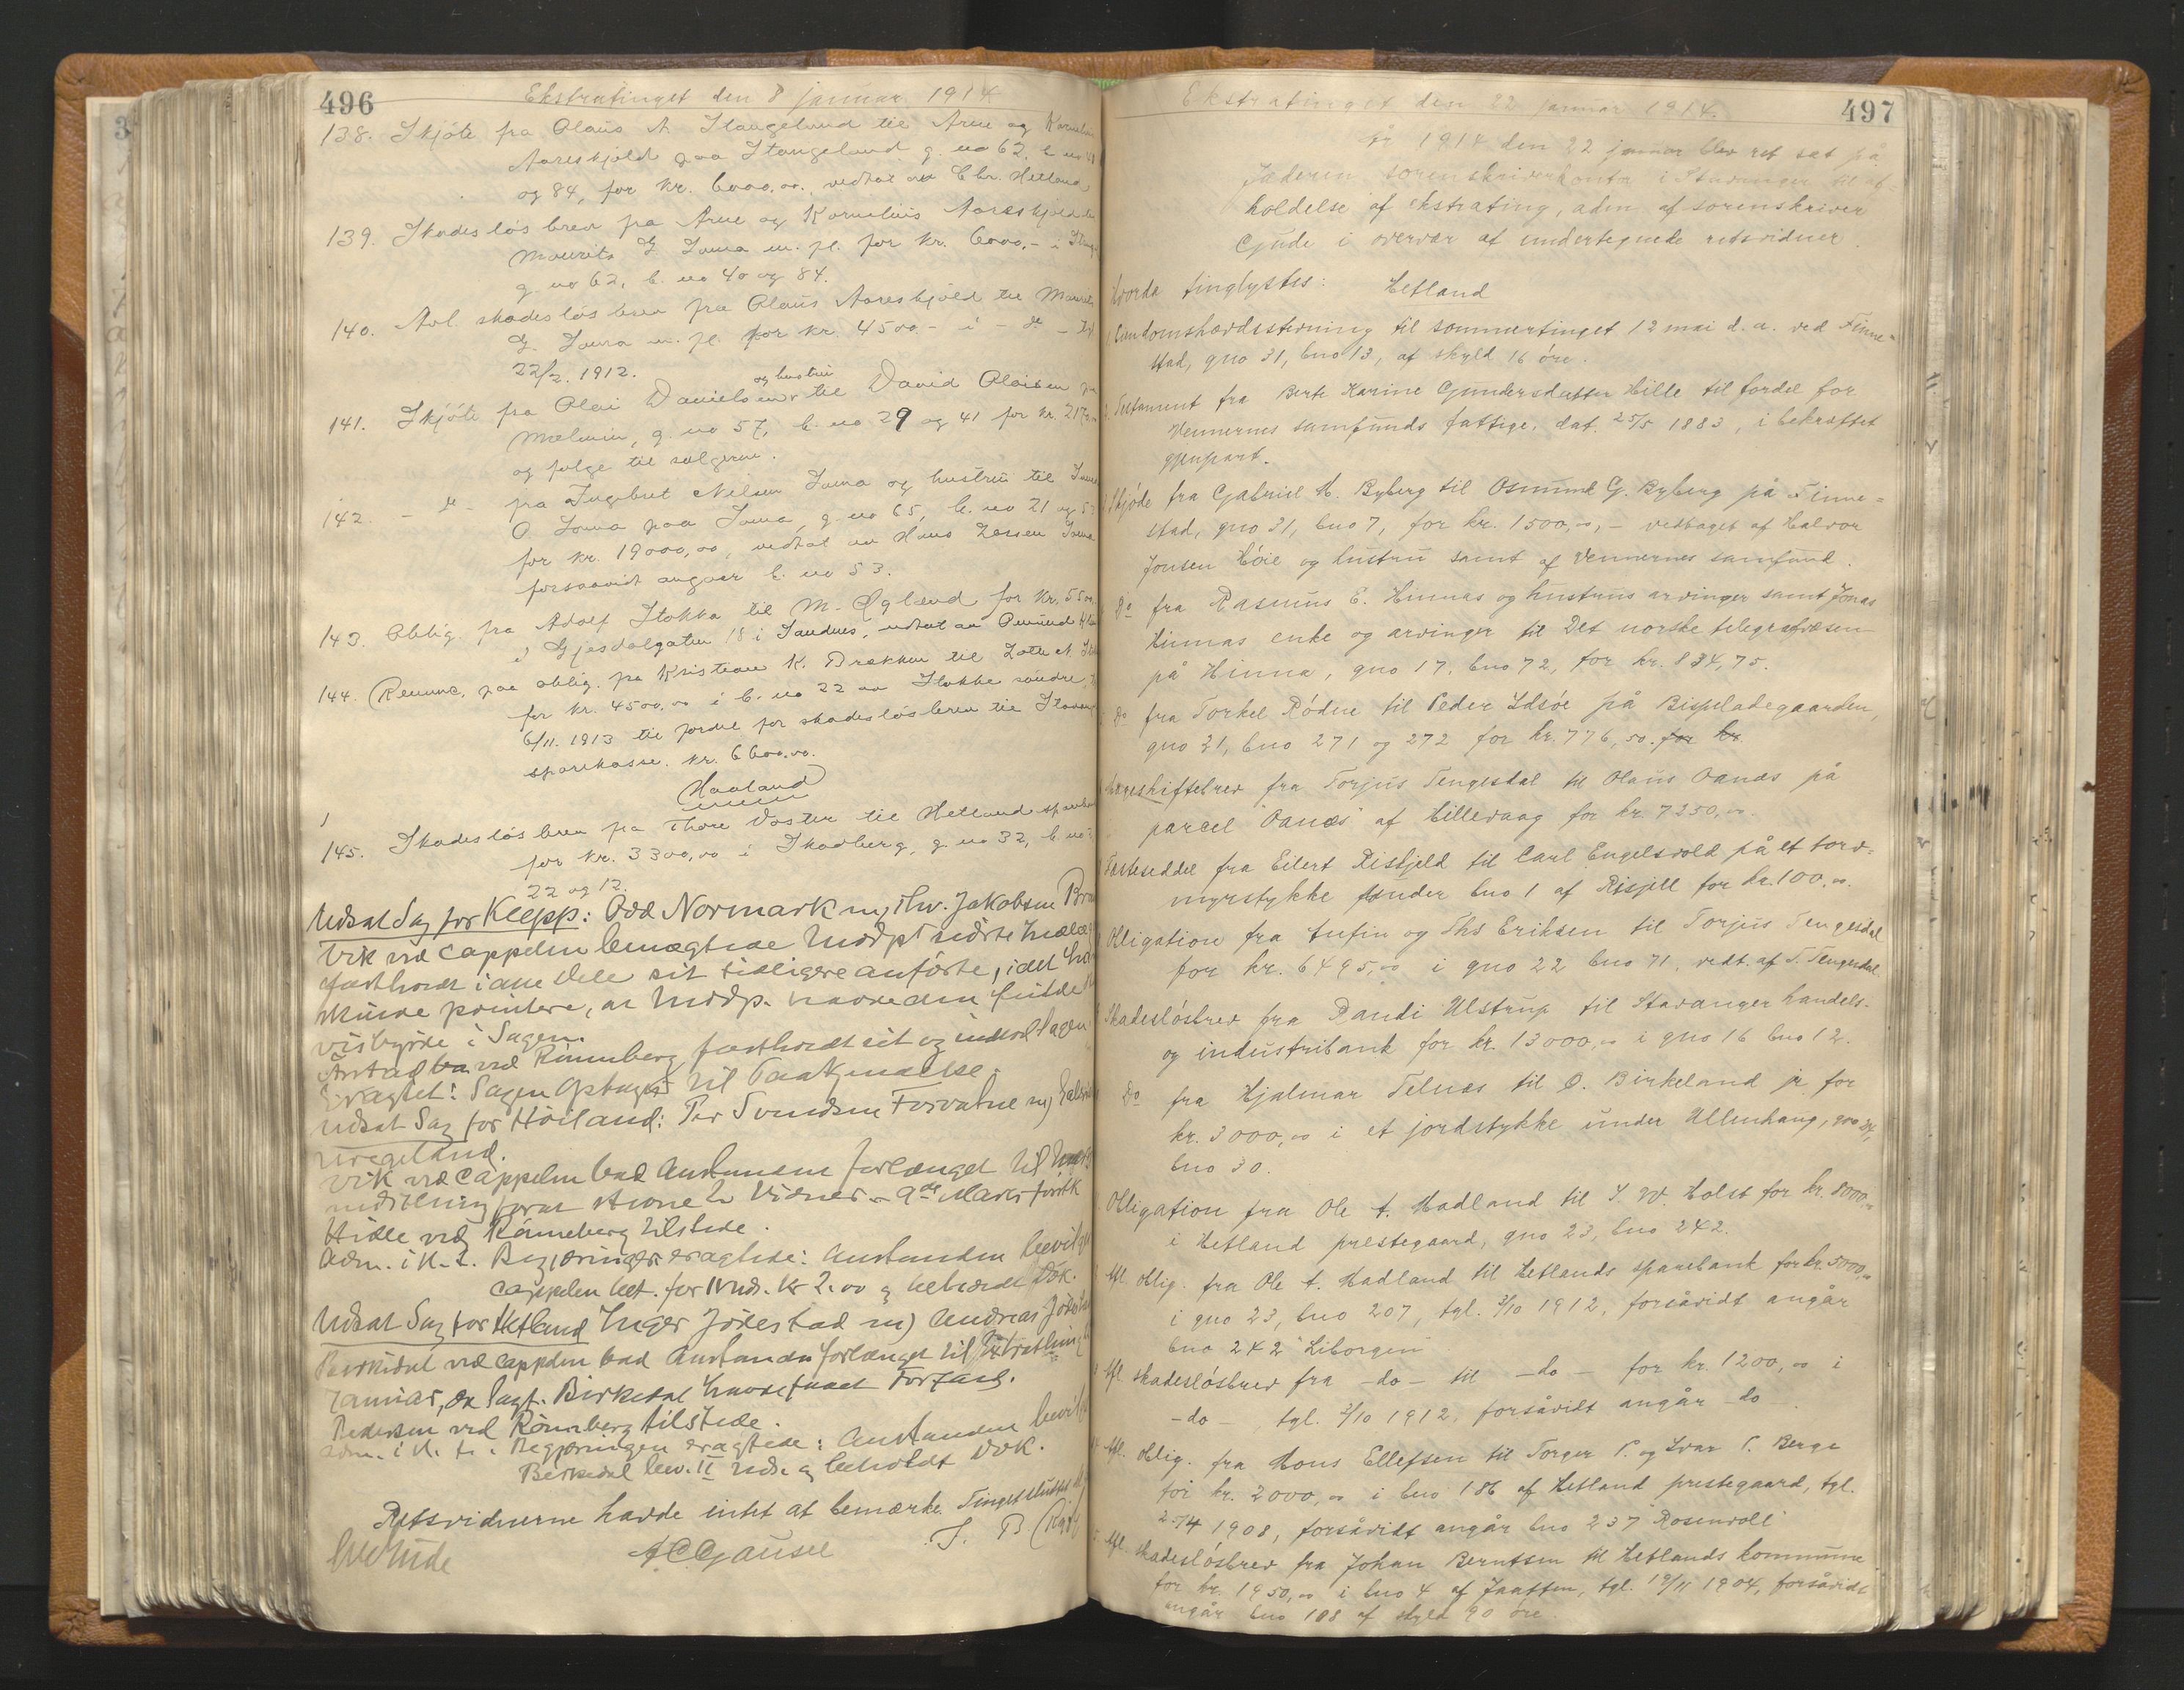 496
Ekstratinget den 8 januar 1914
138. Skjöte fra Olaus A. Stangeland til Arne og Kornelius
Aareskjold paa Stangeland g. no 62, b. no 40
og 84, for kr. 6000.00, vedtat av Chr. Hetland
139. Skadeslös brev fra Arne og Kornelius Aareskjold til
Mourits G. Soma m. fl. for kr. 6000.- i
g. no 62, b. no 40 og 84.
140. Avl. skadeslösbrev fra Olaus Aareskjold til Mourits
G. Soma m. fl. for kr. 4500.- i - do -
22/2. 1912.
141. Skjöte fra Olai Danielsen og hustru til David Olaisen paa
Malmin, g. no 57, b. no 29 og 41 for kr.
og følge til sælgerne.
142. - do - fra Ingebret Nilsen Soma og hustru til
O. Soma paa Soma, g. no 65, b. no 21 og 53
for kr. 19000,00, vedtat av Hans Larsen Soma
forsaavidt angaar b. no 53.
143. Oblig. fra Adolf Stokka til M. Øgland for kr. 5500
i Gjesdalgaten 18 i Sandnes, vedtat av
144. Renunc. paa oblig. fra Kristian K. Brekken til Lotte N.
for kr. 4500.00 i b. no 22 av Stokke söndre,
6/11. 1913 til fordel for skadeslösbrev til
sparekasse. kr. 6600.00.
Haaland
145. Skadeslös brev fra Thore Vaster til Hetland spareb
for kr. 3300,00 i Skadberg, g. no 32, b. no
22 og 12.
Udsat Sag for Klepp: Odd Normark m) Thv. Jakobsen
Vik ved Cappelen bemægtigede Modpt sidste
fastholdt i alle Dele sit tidligere anförte, idet
skulde pointere, at Modp. havde den fulde
visbyrde i Sagen.
Årstad ved Rönneberg fastholdt sit og indlod Sagen
Eragtet: Sagen optages til Paakjendelse.
Udsat Sag for Höiland: Per Svendsen Forvatne m)
Vik ved Cappelen bad Anstanden forlænget til
Hidle ved Rönneberg tilstede.
Adm. i H. t. Begjæringen eragtede: Anstanden bevilget
Cappelen bet. for kr 2.00 og beholdt Dok.
Udsat Sag for Hetland Inger Jödestad m) Andreas
Birkedal ved Cappelen bad Anstanden forlænget til
Januar, da Birkedal havde faaet Forfald.
Pedersen ved Rönneberg tilstede.
adm. i H. t. Begjæringen eragtede: Anstanden
Birkedal og beholdt Dok.
Retsvidnerne havde intet at bemærke. Tinget sluttet
Gude
A C Gausel
497
Ekstratinget den 22 januar 1914.
År 1914 den 22 januar blev ret sat på
Jæderen sorenskriverkontor i Stavanger til af=
holdelse af ekstrating, adm. af sorenskriver
Gude i overvær af undertegnede retsvidner.
Hvorda tinglystes:
Hetland
Eiendomshævdsstevning til sommertinget 12 mai d. a. ved Finne=
stad, gno 31, bno 13, af skyld 16 öre.
Testament fra Berte Karine Gundersdatter Hille til fordel for
Vennernes samfunds fattige, dat. 25/5 1883, i bekræftet
gjenpart.
Skjöde fra Gabriel M. Byberg til Osmund G. Byberg på Finne=
stad, gno 31, bno 7, for kr. 1500,00, - vedtaget af Halvor
Jonsen Höie og hustru samt af Vennernes samfund.
Do fra Rasmus E. Hinnas og hustrus arvinger samt Jonas
Hinnas enke og arvinger til Det norske telegrafvæsen
på Hinna, gno 17, bno 72, for kr. 834,75.
Do fra Torkel Rödne til Peder Idsöe på Bispeladegaarden,
gno 31, bno 271 og 272 for kr. 776,50. for kr.
Mageskiftebrev fra Torjus Tengesdal til Olaus Oanæs på
parcel "Oanæs" af Hillevaag for kr. 7250,00.
Fæsteseddel fra Eilert Riskjeld til Carl Engelsvold på et torv=
myrstykke under bno 1 af Risjell for kr. 100,00.
Obligation fra Enfin og Ths Eriksen til Torjus Tengesdal
for kr. 6495,00 i gno 22 bno 71. vedt. af T. Tengesdal
Skadeslösbrev fra Randi Ulstrup til Stavanger handels-
og industribank for kr. 13000,00 i gno 16 bno 12.
Do fra Hjalmar Telnæs til O. Birkeland jr. for
kr. 3000,00 i et jordstykke under Ullenhaug, gno
bno 30.
Obligation fra Ole T. Madland til S. W. Holst for kr. 8000,00
i Hetland prestegaard, gno 23, bno 242.
Afl. oblig. fra Ole T. Madland til Hetlands sparebank for kr. 5000,00
i gno 23, bno 207, tgl. 3/10 1912, forsåvidt angår
bno 242 "Liborgen"
Afl. skadeslösbrev fra -do- til -do- for kr. 1200,00 i
-do- tgl. 3/10 1912, forsåvidt angår -do.
Afl. oblig. fra Mons Ellefsen til Torger P. og Ivar P. Berge
for kr. 2000,00 i bno 186 af Hetland prestegaard, tgl.
25/4 1908, forsåvidt angår bno 237 "Rosenvoll"
Afl. skadeslösbrev fra Johan Berntsen til Hetlands kommune
for kr. 1950,00 i bno 4 af Jaatten, tgl. 19/11 1904, forsåvidt
angår bno 108 af skyld 90 öre.